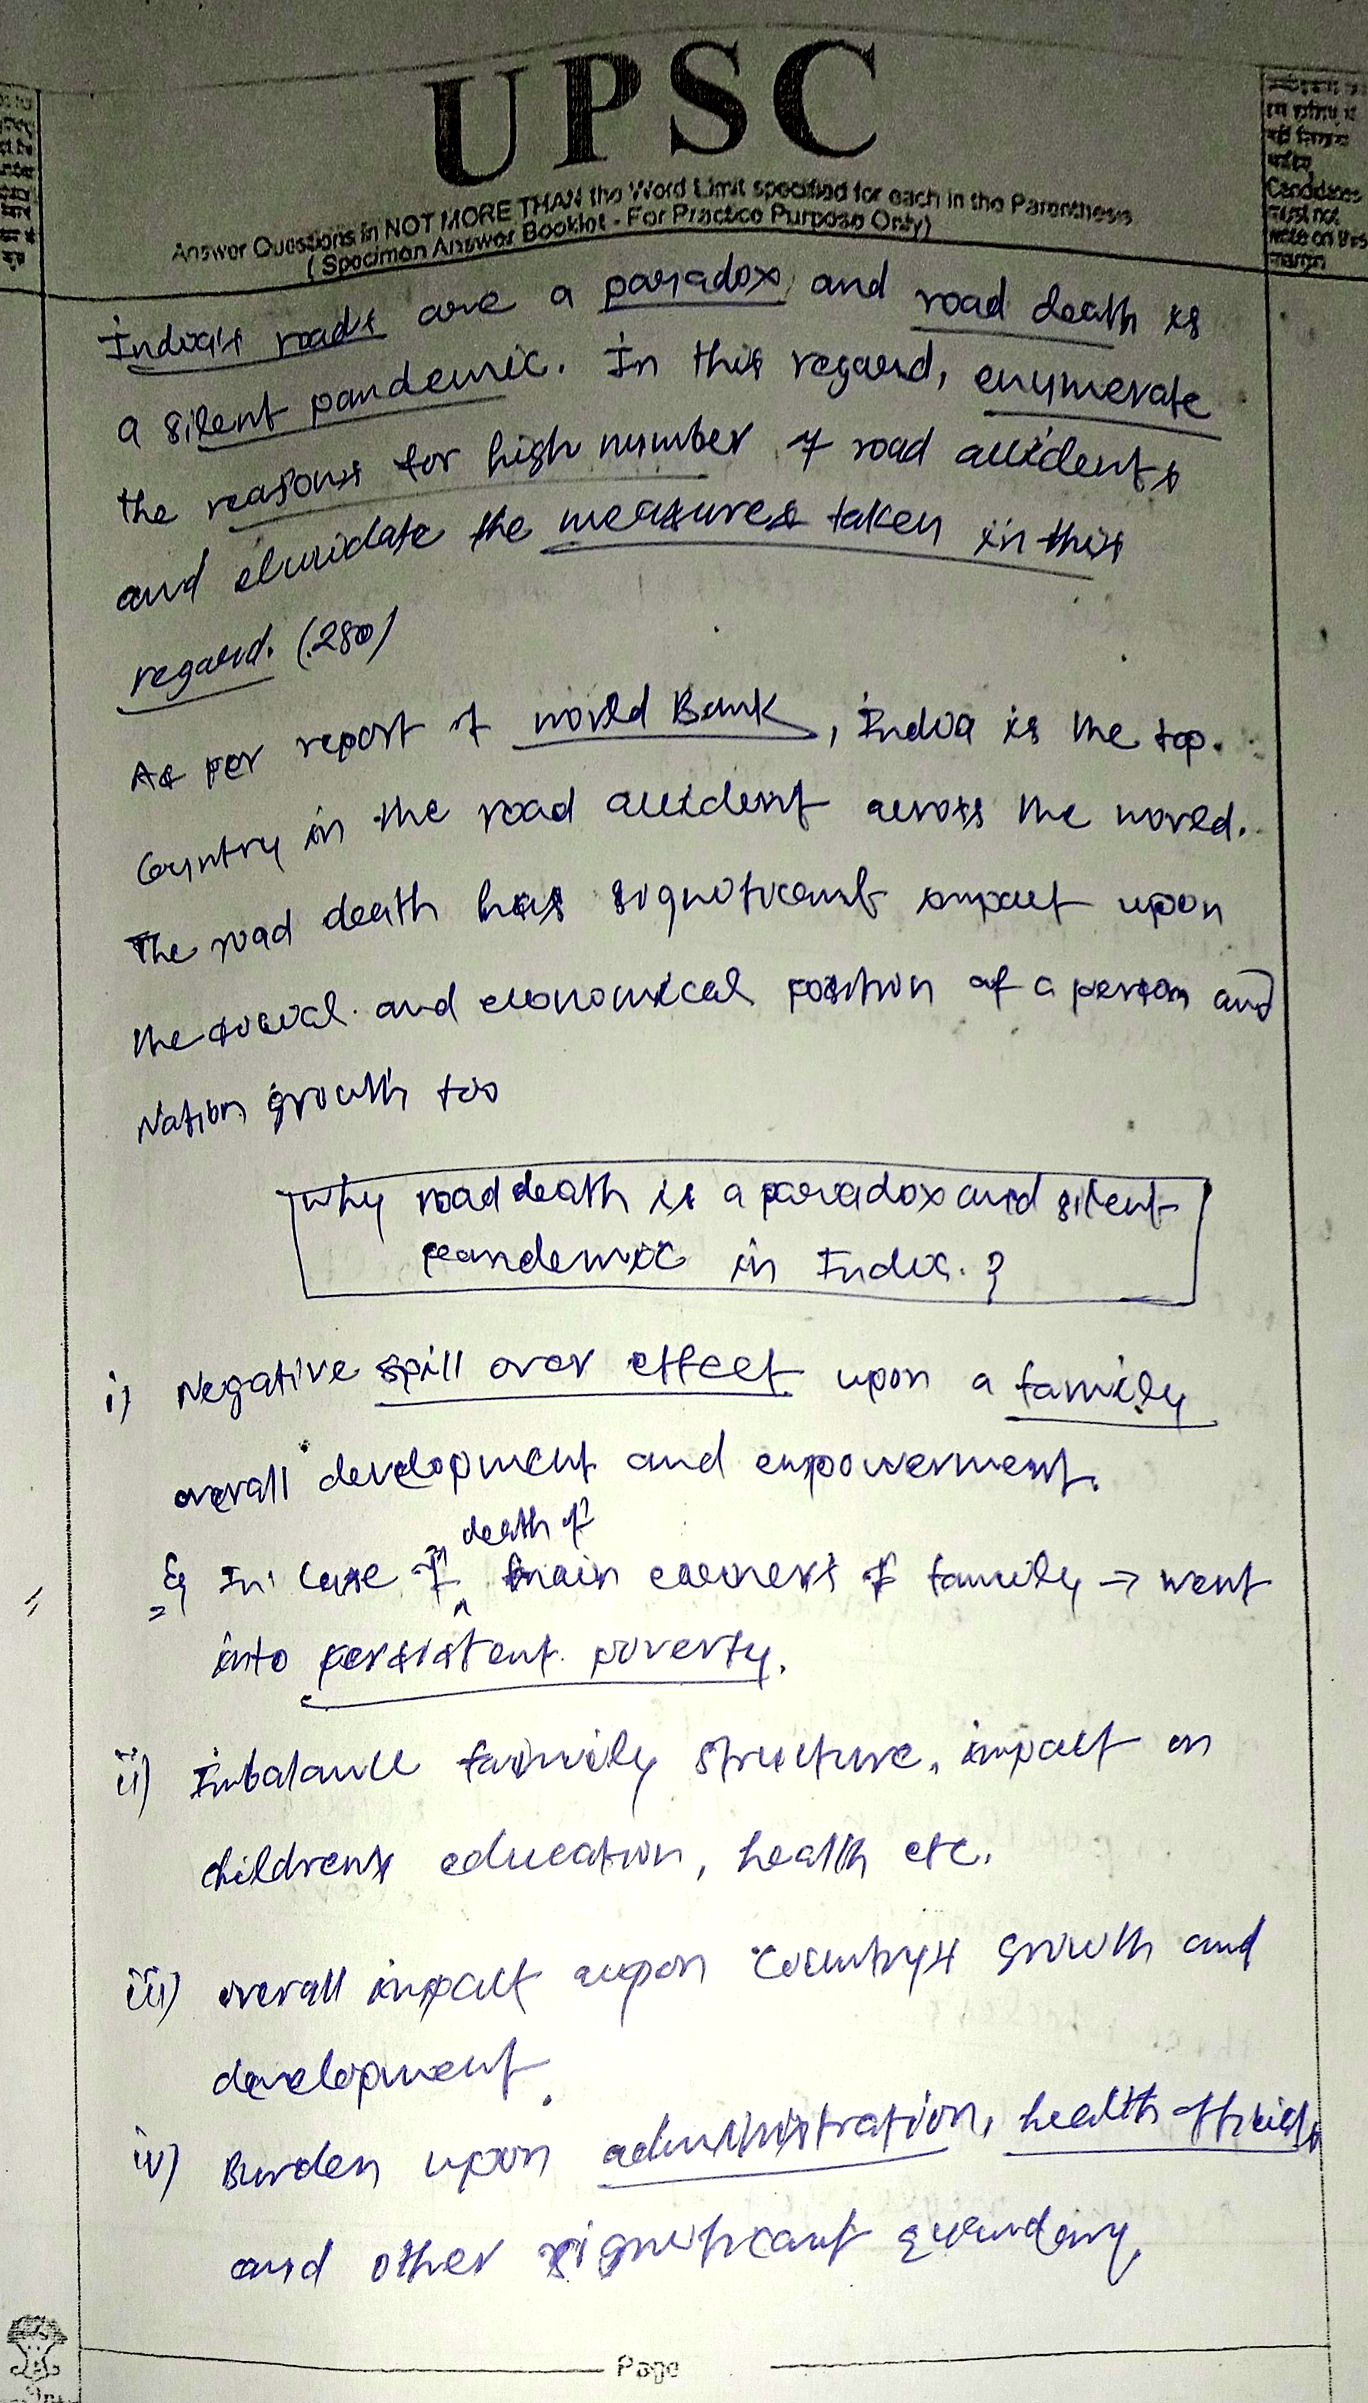 UPSC
Answer Questions in NOT MORE THAN the Word Limit specified for each in the Parenthesis
( Specimen Answer Booklet - For Practice Purpose Only)
Candidates
must not
write on this
margin
India's roads are a paradox, and road death is
a silent pandemic. In this regard, enumerate
the reasons for high number of road accidents
and elucidate the measures taken in this
regard. (250)
As per report of world Bank, India is the top.
Country in the road accident across the world.
The road death has significant impact upon
the social and economical position of a person and
Nation growth too
Why road death is a paradox and silent
pandemic in India. ?
i) Negative spill over effect upon a family
overall development and empowerment.
death of
Eg In case of main earners of family → went
into persistent poverty.
ii) Imbalance family structure, impact on
childrens education, health etc.
iii) overall impact upon country's growth and
development.
iv) Burden upon administration, health officials
and other significant
Page